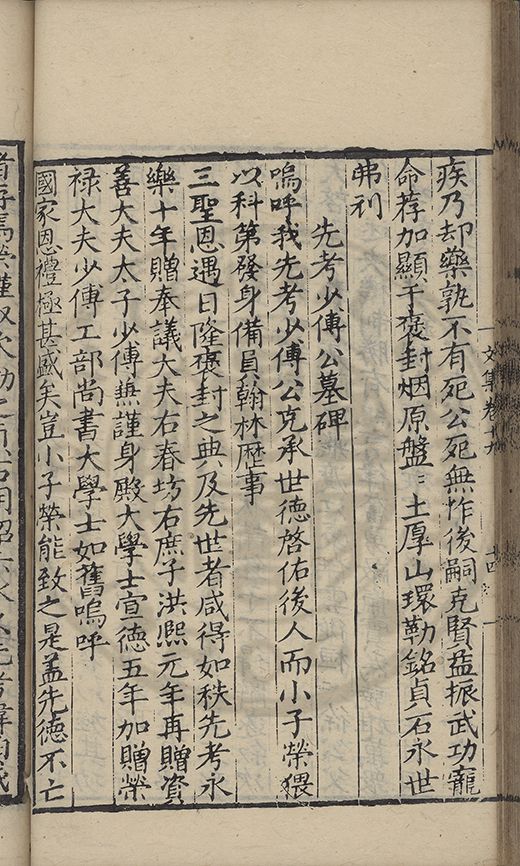 疾乃却藥孰不有死公死無怍後嗣克賢益振武功寵
命荐加顯于褒封烟原盤〻土厚山環勒銘貞石永世
弗刋
先考少傅公墓碑
嗚呼我先考少傅公克承世德啓佑後人而小子榮猥
以科第發身備員翰林歷事
三聖恩遇日隆褒封之典及先世者咸得如秩先考永
樂十年贈奉議大夫右春坊右庶子洪熈元年再贈資
善大夫太子少傅兼謹身殿大學士宣德五年加贈榮
禄大夫少傅工部尚書大學士如舊嗚呼
國家恩禮極甚盛矣豈小子榮能致之是盖先德不亡
文集卷
十四